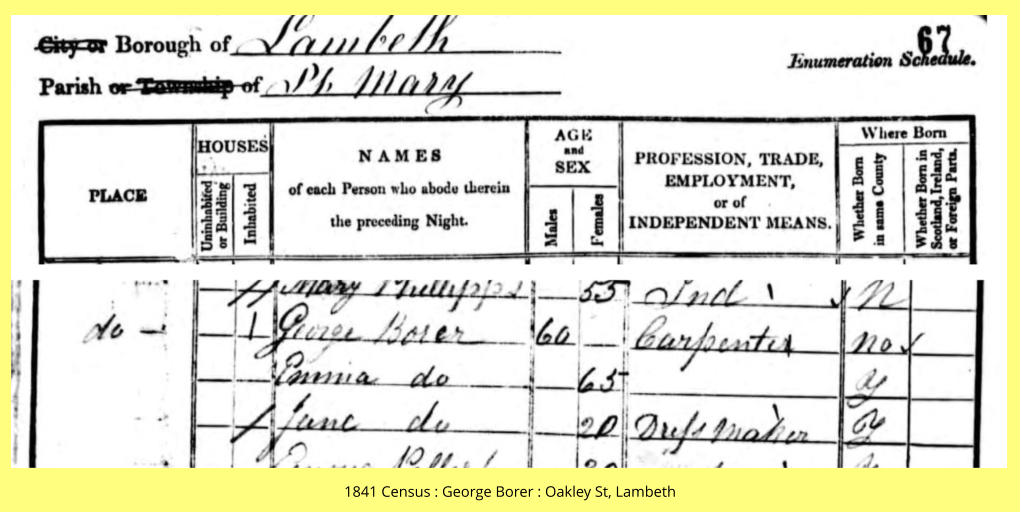 City or Borough of Lambeth
67
Enumeration Schedule.
Parish or Township of St. Mary
PLACE
HOUSES
Uninhabited or Building
Inhabited
NAMES
of each Person who abode therein
the preceding Night.
AGE
and
SEX
Males
Females
PROFESSION, TRADE,
EMPLOYMENT,
or of
INDEPENDENT MEANS.
Where Born
Whether Born
in same County
Whether Born in
Scotland, Ireland,
or Foreign Parts.
Mary Phillipps 55 Ind N
do 1 George Borer 60 Carpenter no
Emma do 65 y
Jane do 20 Dress Maker y
1841 Census : George Borer : Oakley St, Lambeth